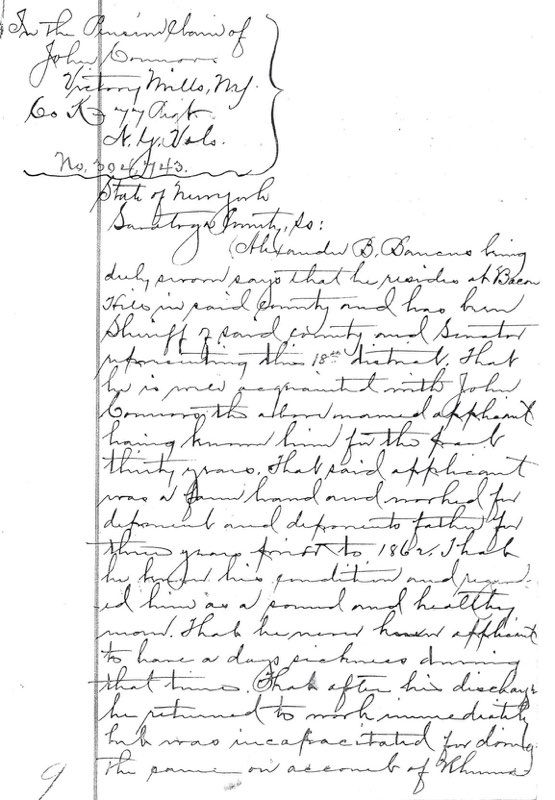 In the Pension Claim of
John Connors
Victory Mills, N.Y.
Co K 77 Regt.
N.Y. Vols.
No. 304,743.
State of New York
Saratoga County, ss:
Alexander B. Baucus being
duly sworn says that he resides at Bacon
Hill in said County and has been
Sheriff of said county and Senator
representing this 18th district. That
he is well acquainted with John
Connors the above named applicant
having known him for the past
thirty years. That said applicant
was a farm hand and worked for
deponent and deponents father for
three years prior to 1862. That
he knew his condition and regard-
ed him as a sound and healthy
man. That he never knew applicant
to have a days sickness during
that time. That after his discharge
he returned to work immediately
but was incapacitated for doing
the same on account of Rheuma
9